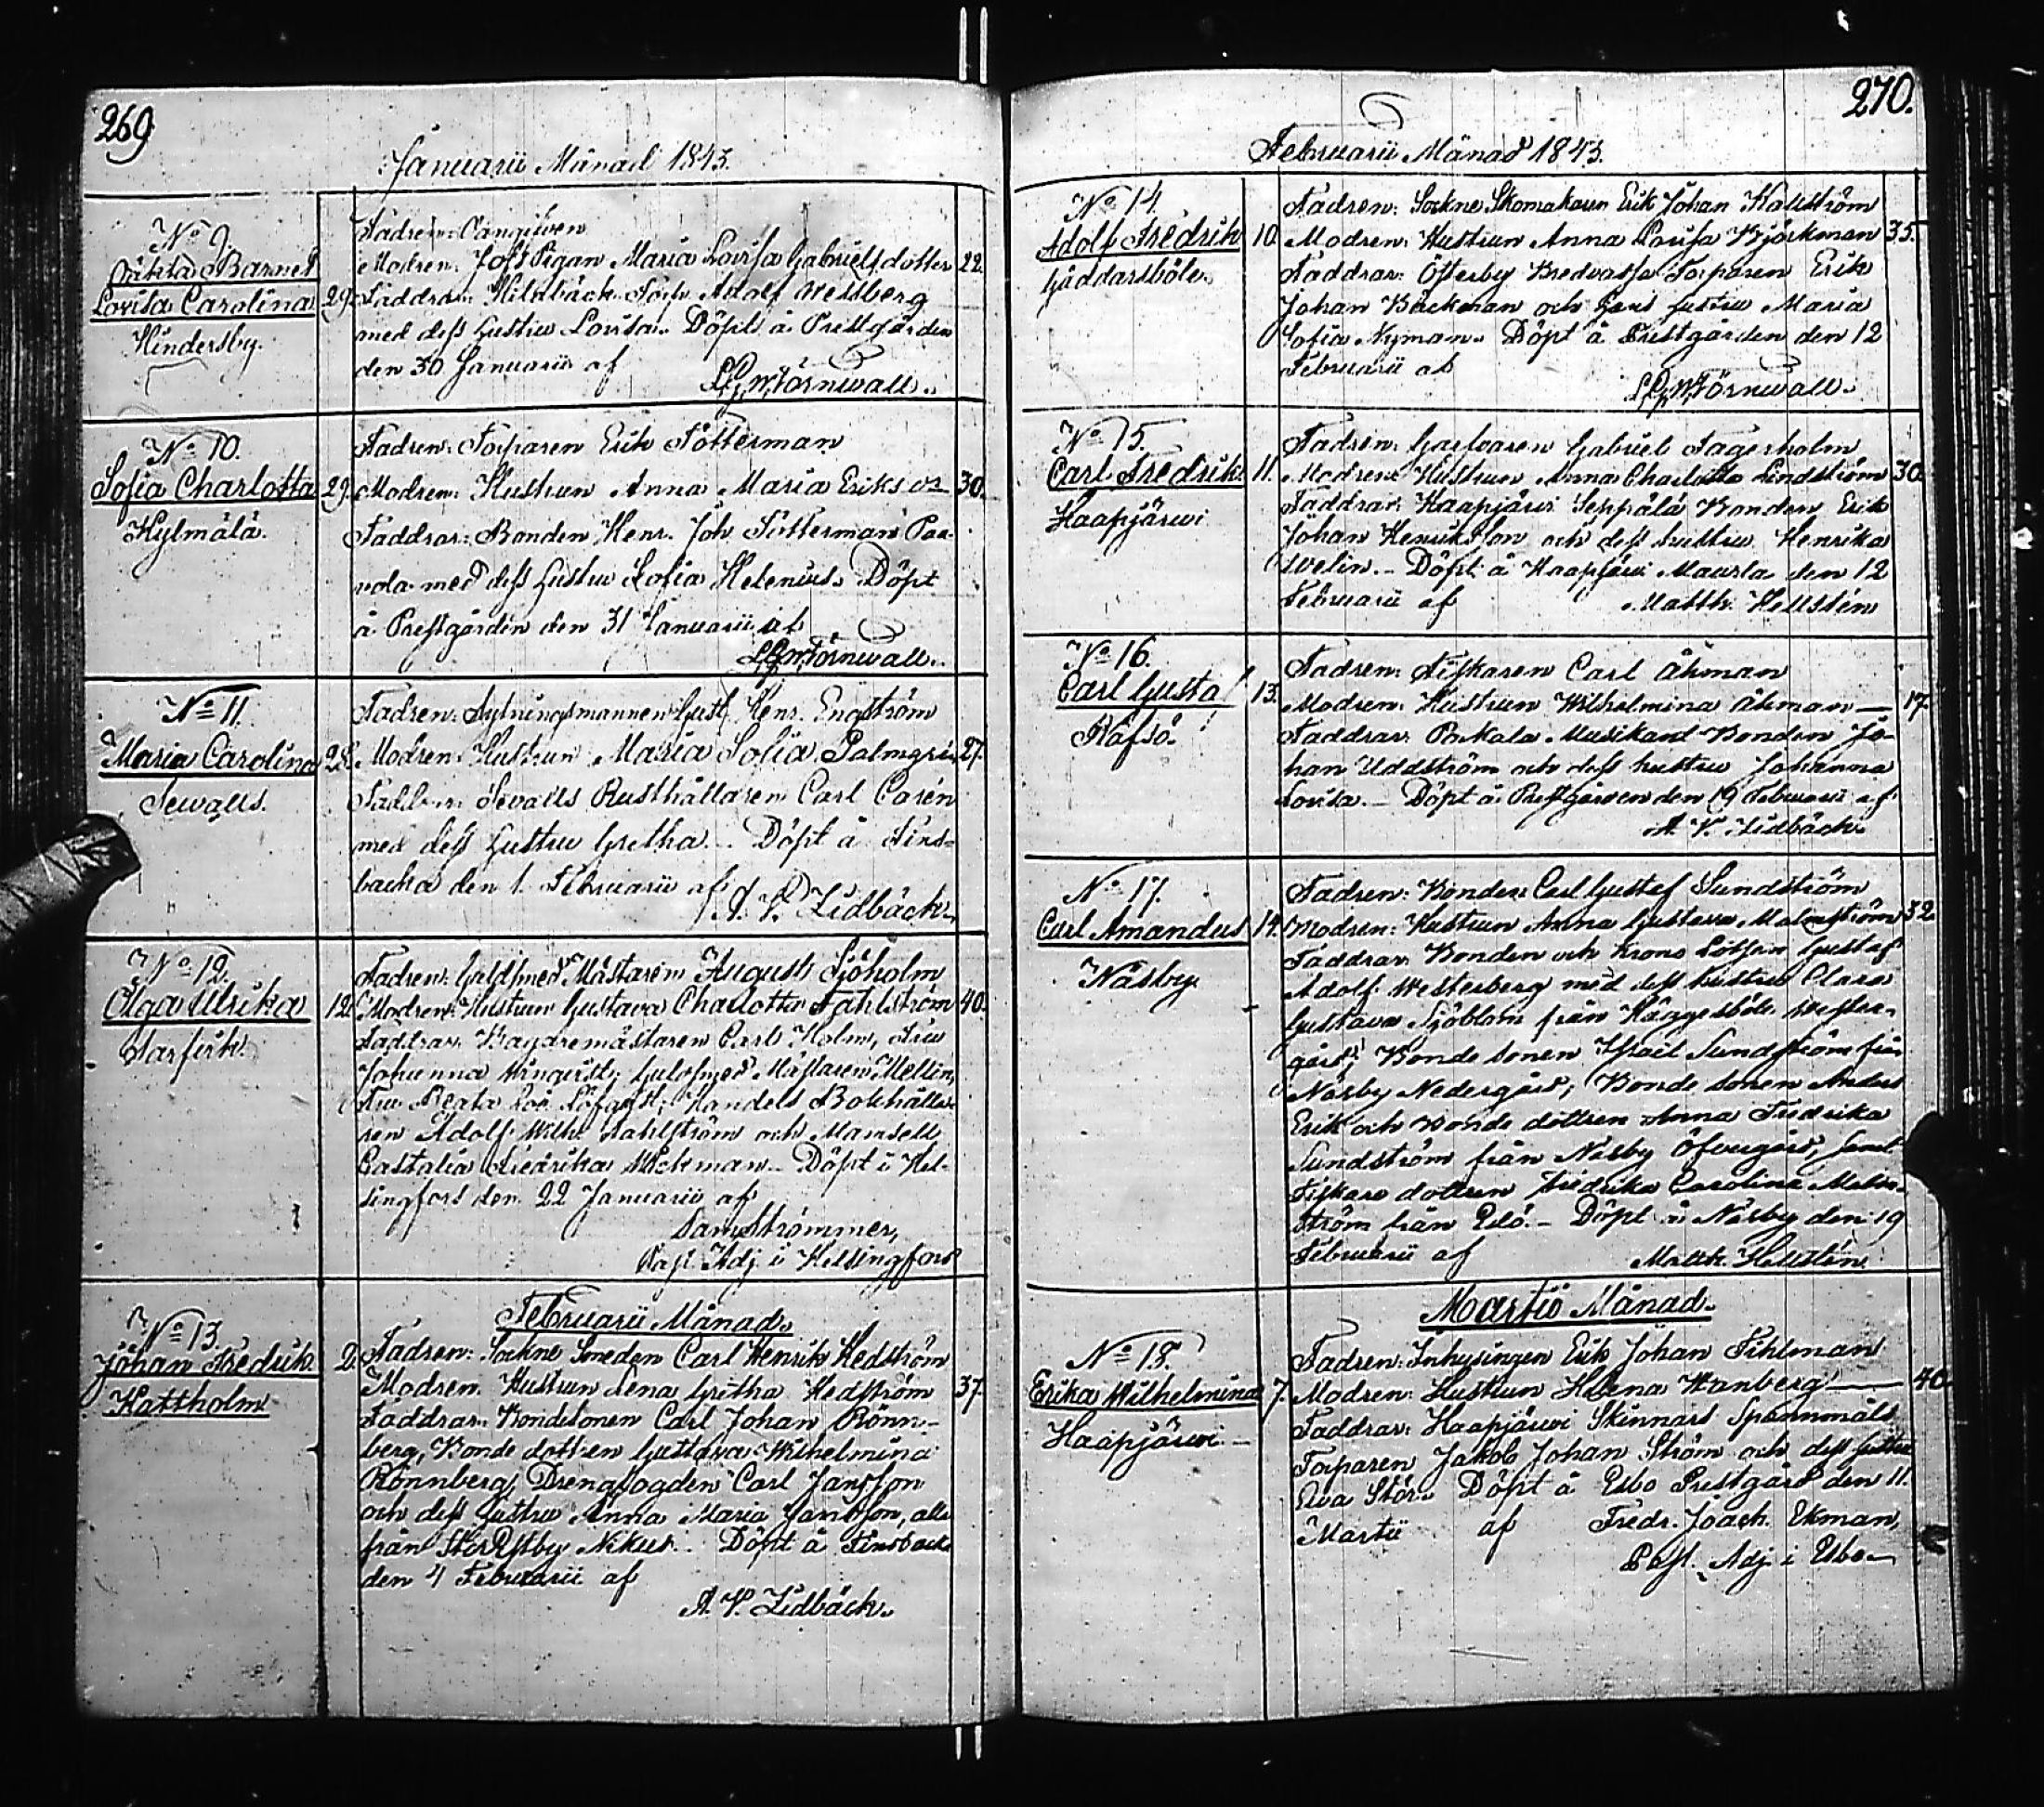 269
Januarii Månad 1843.
No 9.
Oäkta Barnet
Lovisa Carolina
Hindersby.
29.
Fadren: Oangifven
Modren: Pigan Maria Lovisa Gabrielsdotter
22.
Faddrar: Adolf Westberg
med dess hustru Lovisa. Döpt å Prestgården
den 30 Januarii af
Törnwall.
No 10.
Sofia Charlotta
Kylmälä.
29.
Fadren: Torparen Erik Tötterman
Modren: Hustrun Anna Maria Eriks dr
30.
Faddrar: Bonden Henr. Joh Tötterman
med dess hustru Sofia Helenius. Döpt
å Prestgården den 31 Januarii af
Törnwall.
No 11.
Maria Carolina
Sewalls.
28.
Fadren: Sytningsmannen Gust. Henr. Engström
Modren: Hustrun Maria Sofia Palmgrén
27.
Faddrar: Sevalls Rusthållaren Carl Corén
med dess hustru Gretha. Döpt å Finsbacka
den 1. Februarii af
A. V. Lidbäck.
No 12.
Olga Ulrika
Sarfvik.
12.
Fadren: Guldsmeds Mästaren August Sjöholm
Modren: Hustrun Gustava Charlotta Fahlström
40.
Faddrar: Carl Holm, Fru
Johanna Mästaren Mellin,
Fru Beata Handels Bokhålla-
ren Adolf Wilh. Fahlström och Mamsell
Castalia Fredrika Wickman. Döpt i Hel-
singfors den 22 Januarii af
Sam. Strömmer,
Past. Adj. i Helsingfors
Februarii Månad.
No 13.
Johan Fredrik
Kattholm
2.
Fadren: Sockne Smeden Carl Henrik Hedström
Modren: Hustrun Lena Gretha Hedström
37.
Faddrar: Bondesonen Carl Johan Rönn-
berg, Bonde dottren Gustava Wilhelmina
Rönnberg, Drengfogden Carl Jansson
och dess hustru Anna Maria Jansson, alla
från Nikus. Döpt å Finsbacka
den 4 Februarii af
A. V. Lidbäck.
270.
Februarii Månad 1843.
No 14.
Adolf Fredrik
Gäddarsböle.
10.
Fadren: Sockne Skomakaren Erik Johan Hallström
Modren: Hustrun Anna Lovisa Björkman
35.
Faddrar: Österby Bredvassa Torparen Erik
Johan Bäckman och hans hustru Maria
Sofia Nyman. Döpt å Prestgården den 12
Februarii af
Törnwall.
No 15.
Carl Fredrik
Haapjärwi
11.
Fadren: Garfvaren Gabriel Fagerholm
Modren: Hustrun Anna Charlotta Lindström
30.
Faddrar: Haapjärwi Seppälä Bonden Erik
Johan Henriksson och dess hustru Henrika
Döpt å Haapjärwi den 12
Februarii af
Matth. Hellstén
No 16.
Carl Gustaf
Råfsö.
13.
Fadren: Fiskaren Carl Åhman
Modren: Hustrun Wilhelmina Åhman
17.
Faddrar: Porkala Musikant Bonden Jo-
han Uddström och dess hustru Johanna
Lovisa. Döpt å Prestgården den 19 Februarii af
A. V. Lidbäck.
No 17.
Carl Amandus
Näsby
14.
Fadren: Bonden Carl Gustaf Sundström
Modren: Hustrun Anna Gustava Malmström
32.
Faddrar: Bonden och Krono Lotsen Gustaf
Adolf Westerberg med dess hustru Clara
Gustava Sjöblom från Häggesböle Wester-
gård; Bonde sonen Sundström från
Näsby Nedergård; Bonde sonen Anders
Erik och Bonde dottren Anna Fredrika
Sundström från Näsby Öfvergård, samt
Fiskare dottren Fredrika Carolina Malm-
ström från Döpt å Näsby den 19
Februarii af
Matth. Hellstén
Martio Månad.
No 18.
Erika Wilhelmina
Haapjärwi
7.
Fadren: Inhysingen Erik Johan Fihlman
Modren: Hustrun Helena Wanberg
40
Faddrar: Haapjärwi Skinnars Spannmåls
Torparen Jakob Johan Ström och dess hustru
Eva Stör. Döpt å Esbo Prestgård den 11.
Martii af Fredr. Joach. Ekman,
Past. Adj. i Esbo